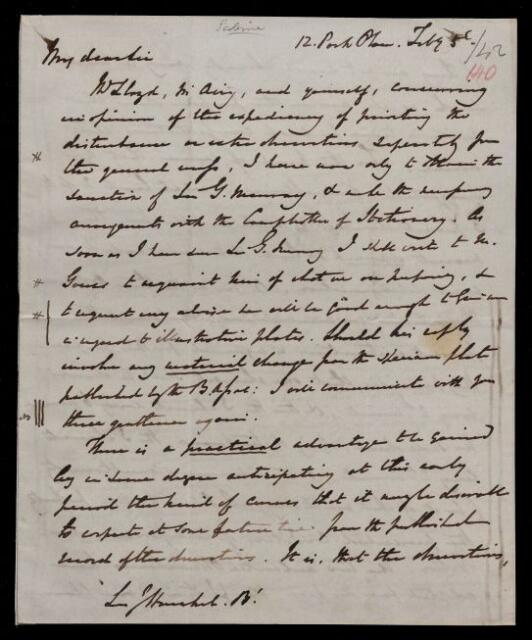 Sabine
12. Park Place. Feby 5th /42
140
My dear Sir
Mr Lloyd, Mr Airy, and yourself, concurring
in opinion of the expediency of printing the
disturbance or extra observations separately from
the general mass, I have now only to obtain the
sanction of Sir G. Murray, & make the necessary
arrangements with the Comptroller of Stationery. As
soon as I have seen Sir G. Murray I shall write to M.
Gauss to acquaint him of what we are preparing, &
to request any advice he will be good enough to give us
in regard to illustrative plates. Should his reply
involve any material change from the specimen plate
published by the B. Assoc: I will communicate with you
three gentlemen again.
There is a practical advantage to be gained
by in some degree anticipating at this early
period the kind of curves that it may be desirable
to expect at some future time from the published
record of the observations. It is, that the observations,
Sir J Herschel. Bt.